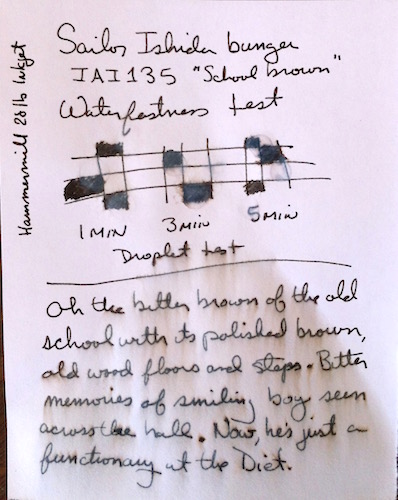 Sailor Ishida bungu
IAI135 "School brown"
Waterfastness test
Hammermill 28 lb Inkjet
1 MIN 3 MIN 5 MIN
Droplet test
Oh the bitter brown of the old
school with its polished brown,
old wood floors and steps. Bitter
memories of smiling boy seen
across the hall. Now, he's just a
functionary at the Diet.